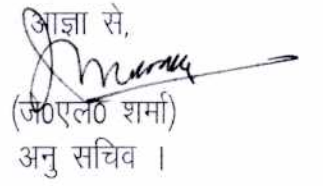 आज्ञा से,
(जे0एल0 शर्मा)
अनु सचिव ।